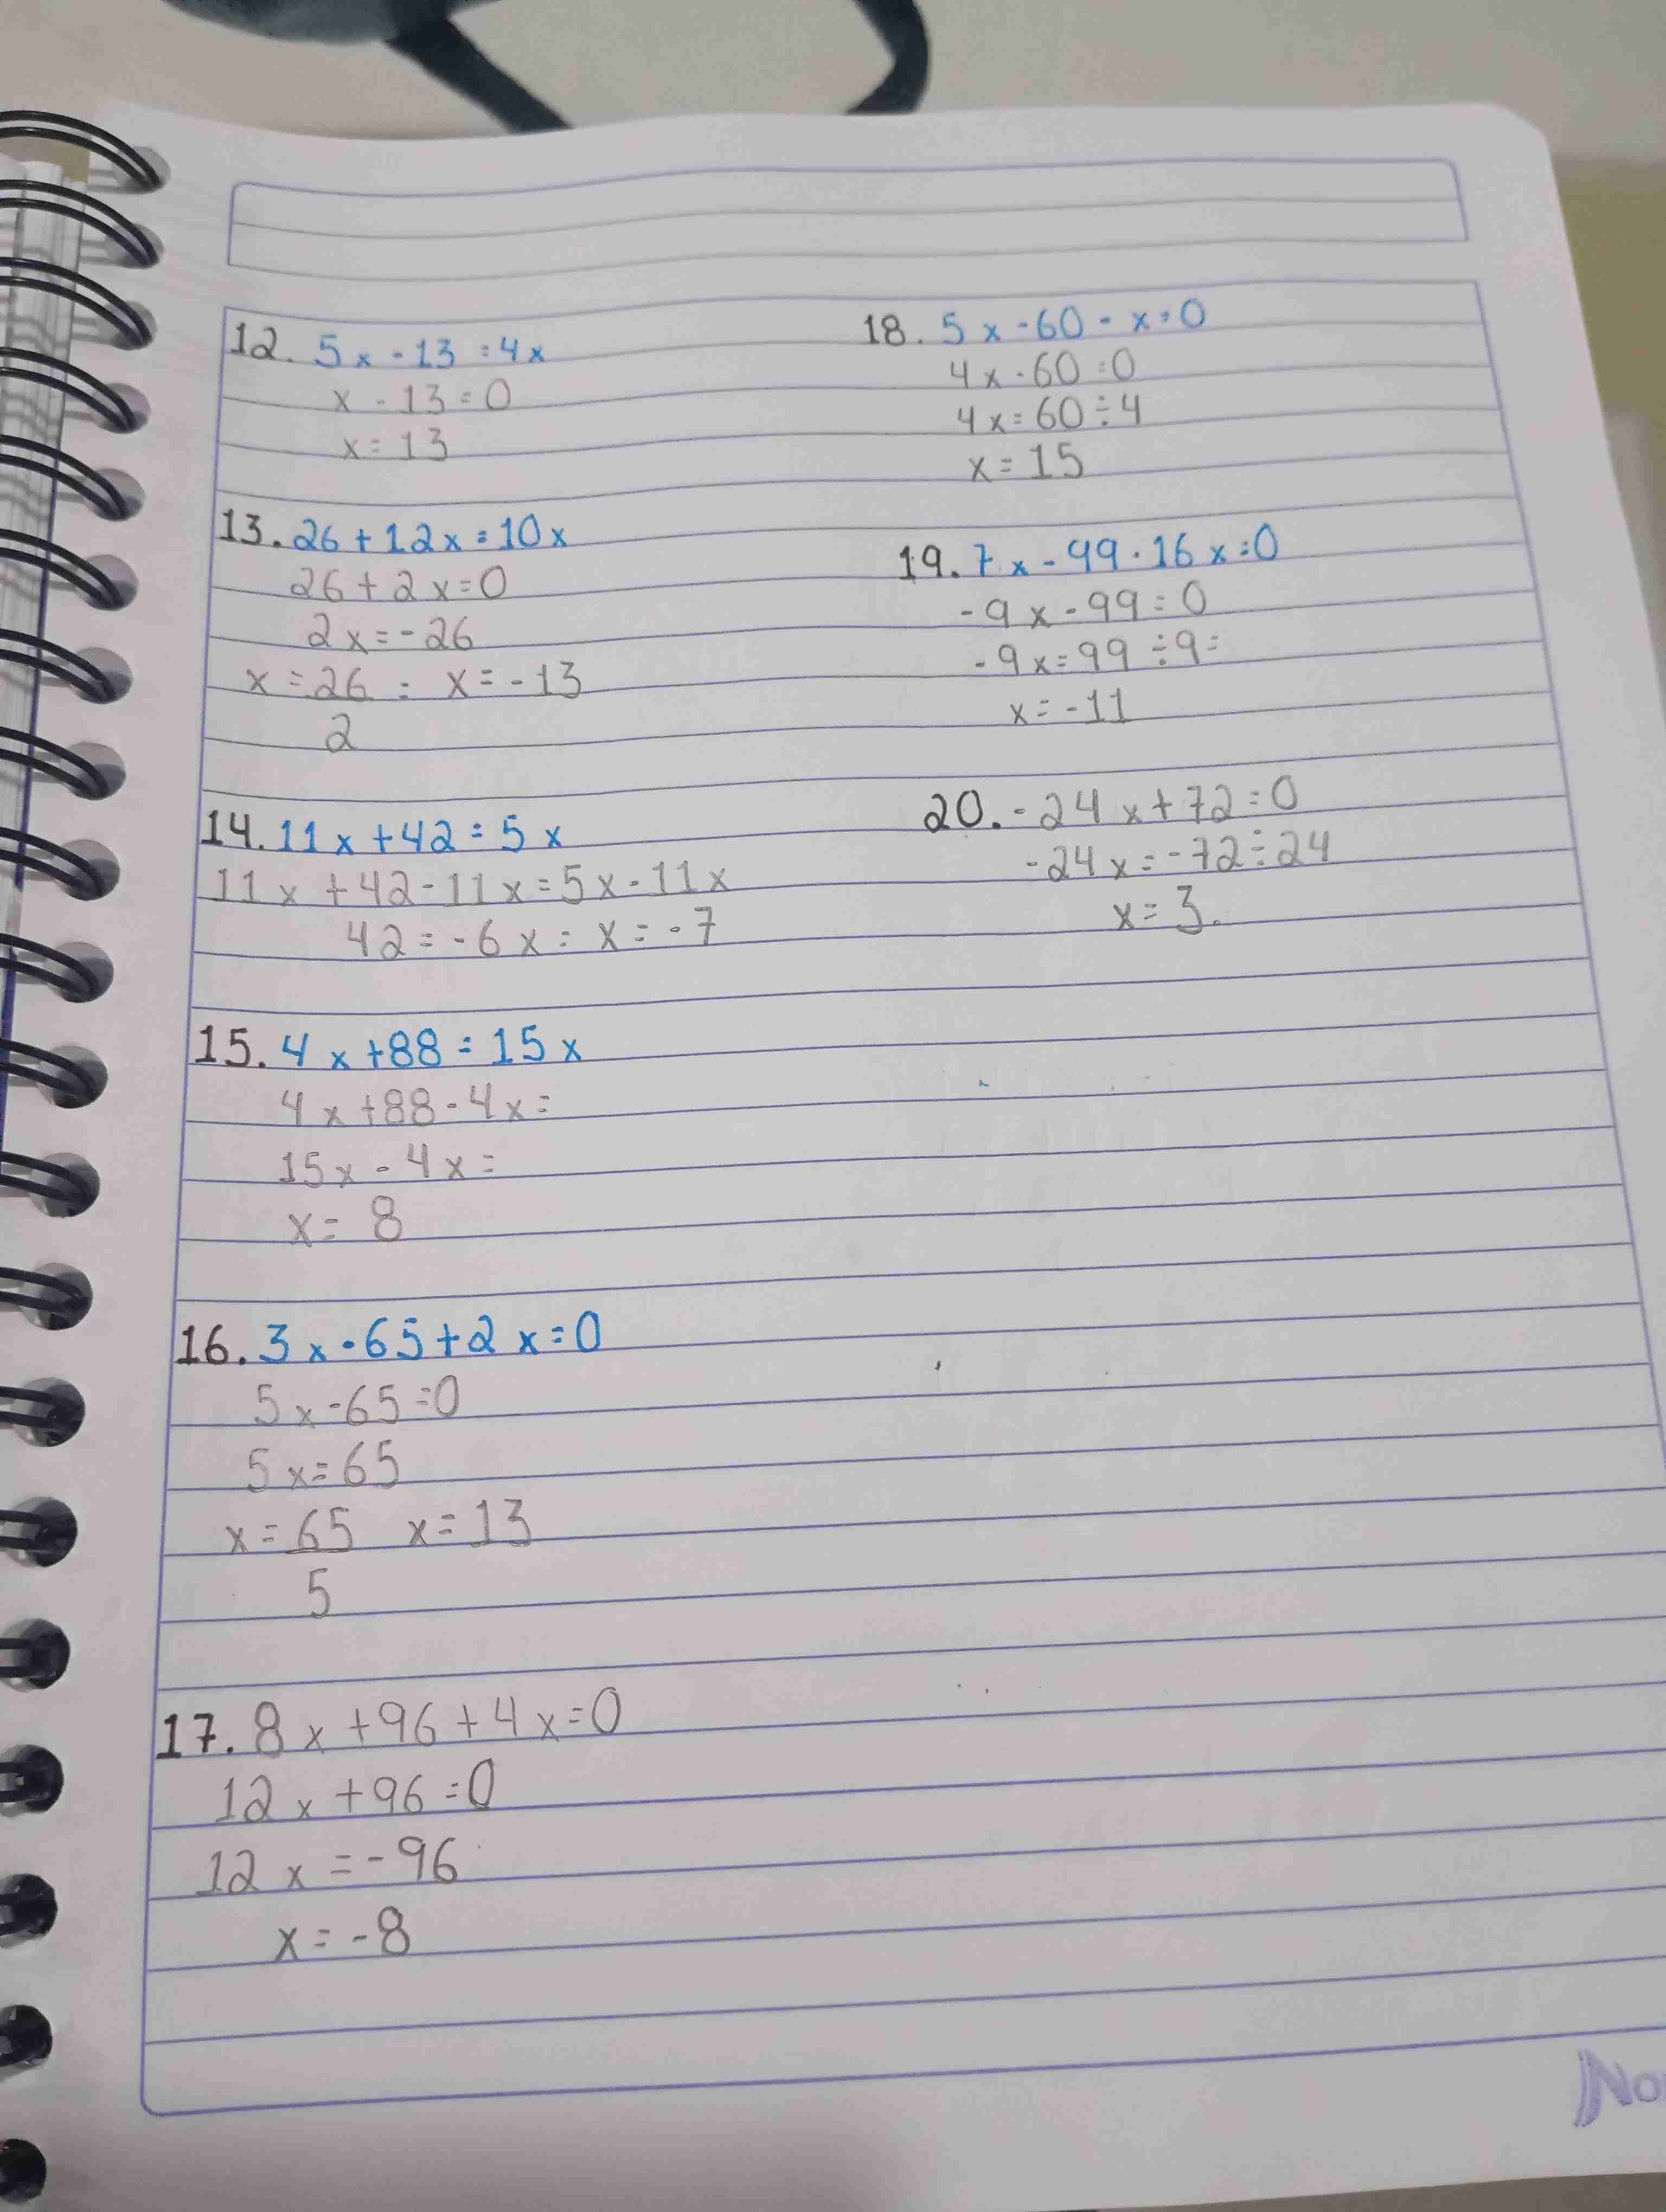 12. 5x - 13 = 4x
x - 13 = 0
x = 13
13. 26 + 12x = 10x
26 + 2x = 0
2x = - 26
x = 26 = x = - 13
2
14. 11x + 42 = 5x
11x + 42 - 11x = 5x - 11x
42 = - 6x = x = - 7
15. 4x + 88 = 15x
4x + 88 - 4x =
15x - 4x =
x = 8
16. 3x - 65 + 2x = 0
5x - 65 = 0
5x = 65
x = 65 x = 13
5
17. 8x + 96 + 4x = 0
12x + 96 = 0
12x = - 96
x = - 8
18. 5x - 60 - x = 0
4x - 60 = 0
4x = 60 ÷ 4
x = 15
19. 7x - 99 - 16x = 0
- 9x - 99 = 0
- 9x = 99 ÷ 9 =
x = - 11
20. - 24x + 72 = 0
- 24x = - 72 ÷ 24
x = 3.